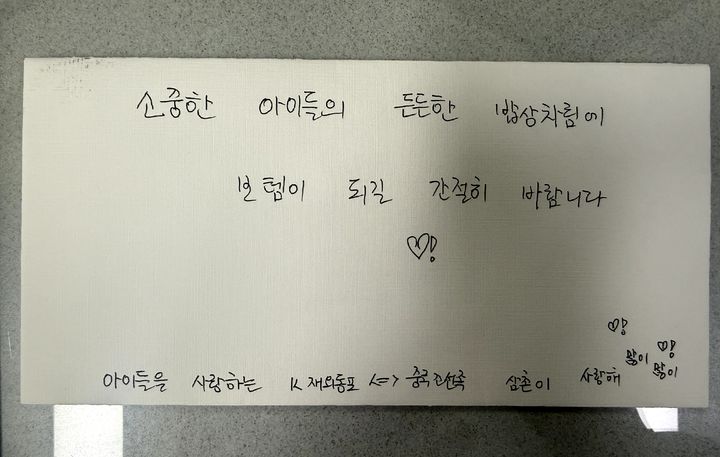 소중한 아이들의 든든한 밥상차림에
보템이 되길 간절히 바랍니다
♡!
아이들을 사랑하는 K 재외동포 <=> 중국 조선족 삼촌이 사랑해
많이♡! 많이♡!